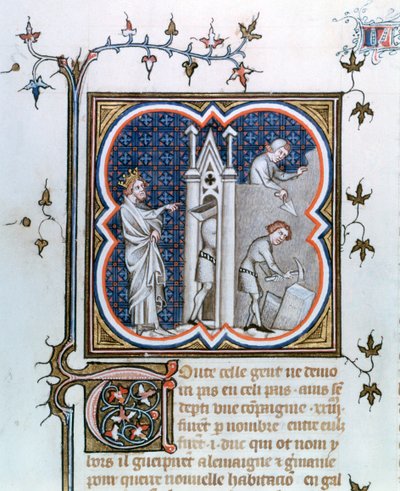 Toute celle gent ne demo
ra pas en celi pais · ains sē
depti vne cōpaignie · xxiij
furēt p nombre · entre eulz
furēt · i · duc qui ot nom y
bors il guerpirēt alemaigne & gmanie
pour querre nouuelle habitaciō en gal